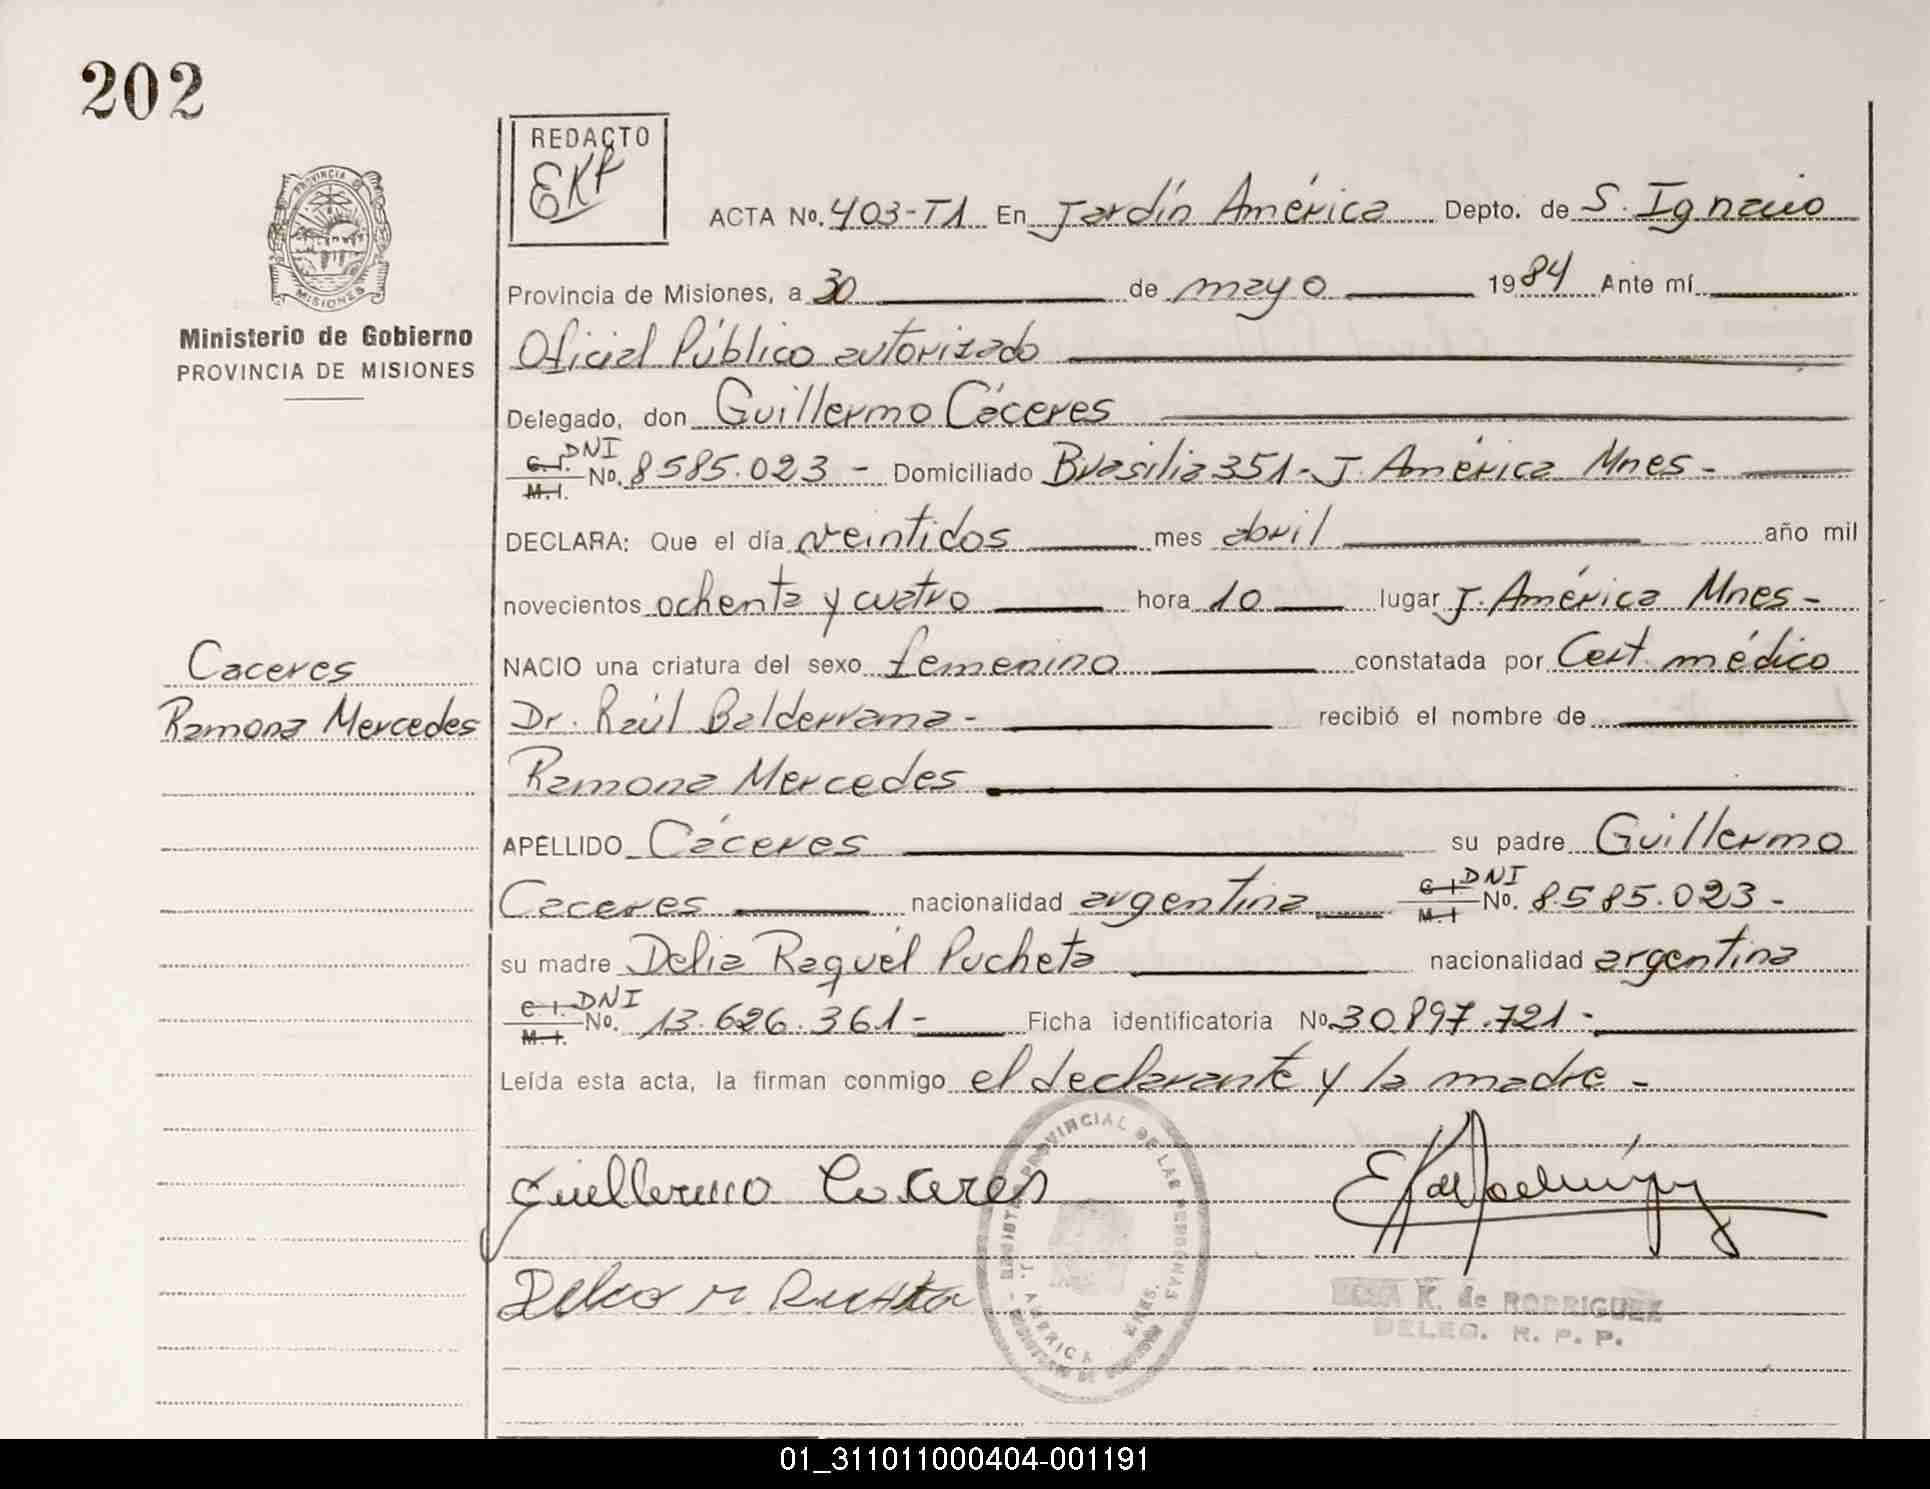 202
REDACTO
EKR
PROVINCIA DE
MISIONES
Ministerio de Gobierno
PROVINCIA DE MISIONES
ACTA No. 403-T1 En Jardín América Depto. de S. Ignacio
Provincia de Misiones, a 30 de mayo 1984 Ante mí
Oficial Público autorizado
Delegado, don Guillermo Cáceres
C. I. DNI
M. I. No. 8585.023 - Domiciliado Brasilia 351 - J. América Mnes -
DECLARA: Que el día veintidos mes abril año mil
novecientos ochenta y cuatro hora 10 lugar J. América Mnes -
Caceres
NACIO una criatura del sexo femenino constatada por Cert. médico
Ramona Mercedes
Dr. Raúl Balderrama - recibió el nombre de
Ramona Mercedes
APELLIDO Cáceres su padre Guillermo
Caceres nacionalidad argentina C. I. DNI M. I No. 8.585.023 -
su madre Delia Raquel Pucheta nacionalidad argentina
C. I. DNI
M. I. No. 13.626.361 - Ficha identificatoria No 30.897.721 -
Leída esta acta, la firman conmigo el declarante y la madre -
Guillermo Caceres
REGISTRO PROVINCIAL DE LAS PERSONAS
J. AMERICA MNES.
K. de RODRIGUEZ
DELEG. R. P. P.
01_311011000404-001191